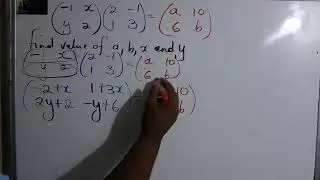 (-1 x  y 2) (2 -1  1 3) = (a 10  6 b)
find value of a, b, x and y
(-1 x  y 2) (2 -1  1 3) = (a 10  6 b)
(-2+x 1+3x  2y+2 -y+6) = 10 b)